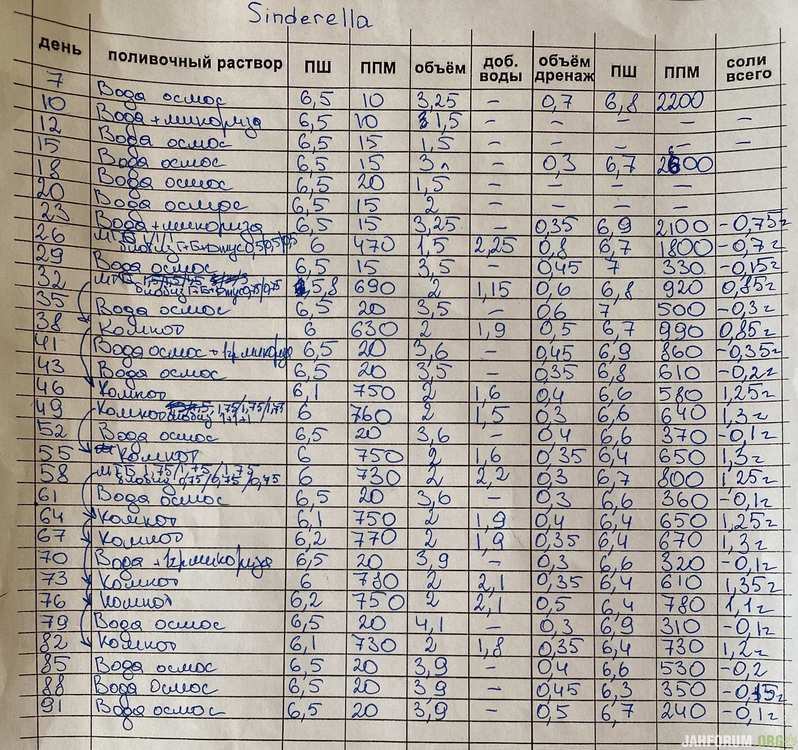 Sinderella
день поливочный раствор ПШ ППМ объём доб. воды объём дренаж ПШ ППМ соли всего
7 Вода осмос 6,5 10 3,25 – 0,7 6,8 2200
10 Вода + микориза 6,5 10 1,5 – – – – –
12 Вода осмос 6,5 15 1,5 – – – – –
15 Вода осмос 6,5 15 3л – 0,3 6,7
18 Вода осмос 6,5 20 1,5 – – – –
20 Вода осмос 6,5 15 2 – – – –
23 Вода + микориза 6,5 15 3,25 – 0,35 6,9 2100 –0,75г
26 6 470 1,5 2,25 0,8 6,7 1800 –0,7г
29 Вода осмос 6,5 15 3,5 – 0,45 7 330 –0,15г
32 5,8 690 2 1,15 0,6 6,8 920 0,85г
35 Вода осмос 6,5 20 3,5 – 0,6 7 500 –0,3г
38 Компот 6 630 2 1,9 0,5 6,7 990 0,85г
41 Вода осмос + 1гр микориза 6,5 20 3,6 – 0,45 6,9 860 –0,35г
43 Вода осмос 6,5 20 3,5 – 0,35 6,8 610 –0,2г
46 Компот 6,1 750 2 1,6 0,4 6,6 580 1,25г
49 Компот 1,75/1,75/1,75 6 760 2 1,5 0,3 6,6 640 1,3г
52 Вода осмос 6,5 20 3,6 – 0,4 6,6 370 –0,1г
55 Компот 6 750 2 1,6 0,35 6,4 650 1,3г
58 МГБ 1,75/1,75/1,75 0,75/0,75/0,75 6 730 2 2,2 0,3 6,7 800 1,25г
61 Вода осмос 6,5 20 3,6 – 0,3 6,6 360 –0,1г
64 Компот 6,1 750 2 1,9 0,4 6,4 650 1,25г
67 Компот 6,2 770 2 1,9 0,35 6,4 670 1,3г
70 Вода + 1гр микориза 6,5 20 3,9 – 0,3 6,6 320 –0,1г
73 Компот 6 2 2,1 0,35 6,4 610 1,35г
76 Компот 6,2 750 2 2,1 0,5 6,4 780 1,1г
79 Вода осмос 6,5 20 4,1 – 0,3 6,9 310 –0,1г
82 Компот 6,1 730 2 1,8 0,35 6,4 730 1,2г
85 Вода осмос 6,5 20 3,9 – 0,4 6,6 530 –0,2
88 Вода осмос 6,5 20 3,9 – 0,45 6,3 350
91 Вода осмос 6,5 20 3,9 – 0,5 6,7 240 –0,1г
JAHFORUM.ORG